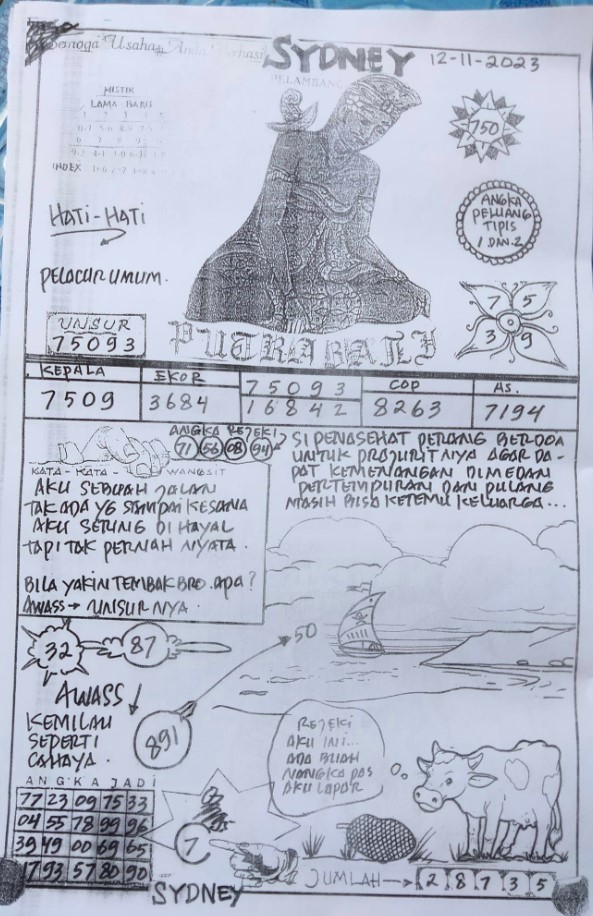 Semoga Usaha Anda Berhasil
SYDNEY 12-11-2023
PELAMBANG
MISTIK
LAMA BARU
INDEX
750
HATI-HATI
ANGKA
PELUANG
TIPIS
1 DAN 2
PELACUR UMUM.
7 5
3 9
UNSUR
75093
PUTRA BALI
KEPALA
7509
EKOR
3684
75093
16842
COP
8263
AS.
7194
ANGKA REJEKI
71 56 08 94
KATA - KATA - WANGSIT
AKU SEBUAH JALAN
TAK ADA YG SAMPAI KESANA
AKU SERING DI HAYAL
TAPI TAK PERNAH NYATA.
BILA YAKIN TEMBAK BRO. APA?
AWASS → UNSURNYA.
SI PENASEHAT PERANG BERDOA
UNTUK PRAJURITNYA AGAR DA-
PAT KEMENANGAN DIMEDAN
PERTEMPURAN DAN PULANG
MASIH BISA KETEMU KELUARGA...
32 87
50
AWASS ↓
KEMILAU
SEPERTI
CAHAYA.
891
REJEKI
AKU INI...
ADA BUAH
NANGKA PAS
AKU LAPAR
ANGKA JADI
77 23 09 75 33
04 55 78 99 96
39 49 00 69 65
17 93 57 80 90
7
JUMLAH → 2 8 7 3 5
SYDNEY